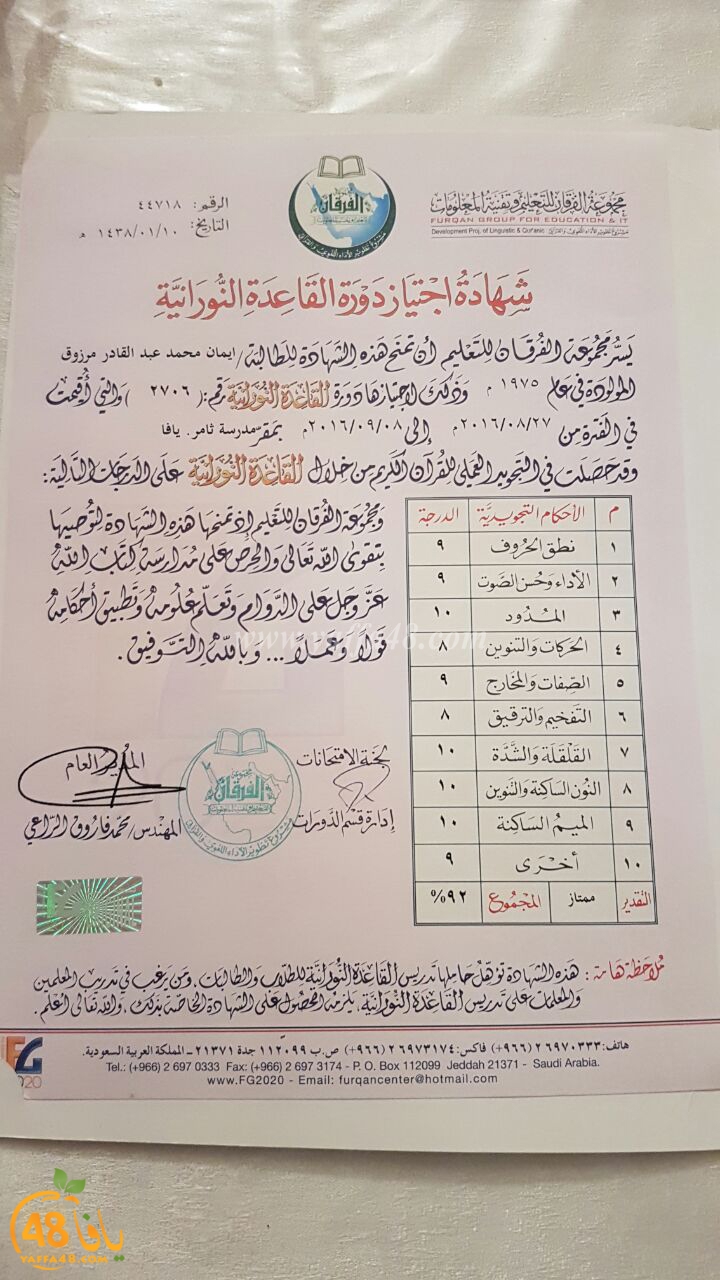 مجموعة الفرقان للتعليم وتقنية المعلومات
FURQAN GROUP FOR EDUCATION & IT
Development Proj. of Linguistic & Qur'anic مشروع تطوير الأداء اللغوي والقرآني
الفرقان
الرقم: ٤٤٧١٨
التاريخ: ١٤٣٨/٠١/١٠ هـ
شهادة اجتياز دورة القاعدة النورانية
يسر مجموعة الفرقان للتعليم أن تمنح هذه الشهادة للطالبة/ ايمان محمد عبد القادر مرزوق
المولودة في عام ١٩٧٥ م وذلك لاجتيازها دورة القاعدة النورانية رقم: ( ٢٧٠٦ ) والتي أقيمت
في الفترة من ٢٠١٦/٠٨/٢٧م إلى ٢٠١٦/٠٩/٠٨م بمقر مدرسة ثامر. يافا
وقد حصلت في التجويد العملي للقرآن الكريم من خلال القاعدة النورانية على الدرجات التالية:
م الأحكام التجويدية الدرجة
١ نطق الحروف ٩
٢ الأداء وحسن الصوت ٩
٣ المدود ١٠
٤ الحركات والتنوين ٨
٥ الصفات والمخارج ٩
٦ التفخيم والترقيق ٨
٧ القلقلة والشدة ١٠
٨ النون الساكنة والتنوين ١٠
٩ الميم الساكنة ١٠
١٠ أخرى ٩
التقدير ممتاز المجموع ٩٢%
ومجموعة الفرقان للتعليم إذ تمنحها هذه الشهادة لتوصيها
بتقوى الله تعالى والحرص على مدارسة كتاب الله
عز وجل على الدوام وتعلم علومه وتطبيق أحكامه
قولاً وعملاً ... وبالله التوفيق.
www.yaffa48.com
لجنة الامتحانات
إدارة قسم الدورات
مجموعة
الفرقان
مشروع تطوير الأداء اللغوي والقرآني
المدير العام
المهندس/ محمد فاروق الراعي
ملاحظة هامة: هذه الشهادة تؤهل حاملها تدريس القاعدة النورانية للطلاب والطالبات. ومن يرغب في تدريب المعلمين
والمعلمات على تدريس القاعدة النورانية، يلزمه الحصول على الشهادة الخاصة بذلك. والله تعالى أعلم.
هاتف: ٢٦٩٧٠٣٣٣ (٩٦٦+) فاكس: ٢٦٩٧٣١٧٤ (٩٦٦+) ص.ب ١١٢٠٩٩ جدة ٢١٣٧١ - المملكة العربية السعودية.
Tel.: (+966) 2 697 0333 Fax: (+966) 2 697 3174 - P. O. Box 112099 Jeddah 21371 - Saudi Arabia.
www.FG2020 - Email: furqancenter@hotmail.com
FG
2020
يافا 48
YAFFA48.COM